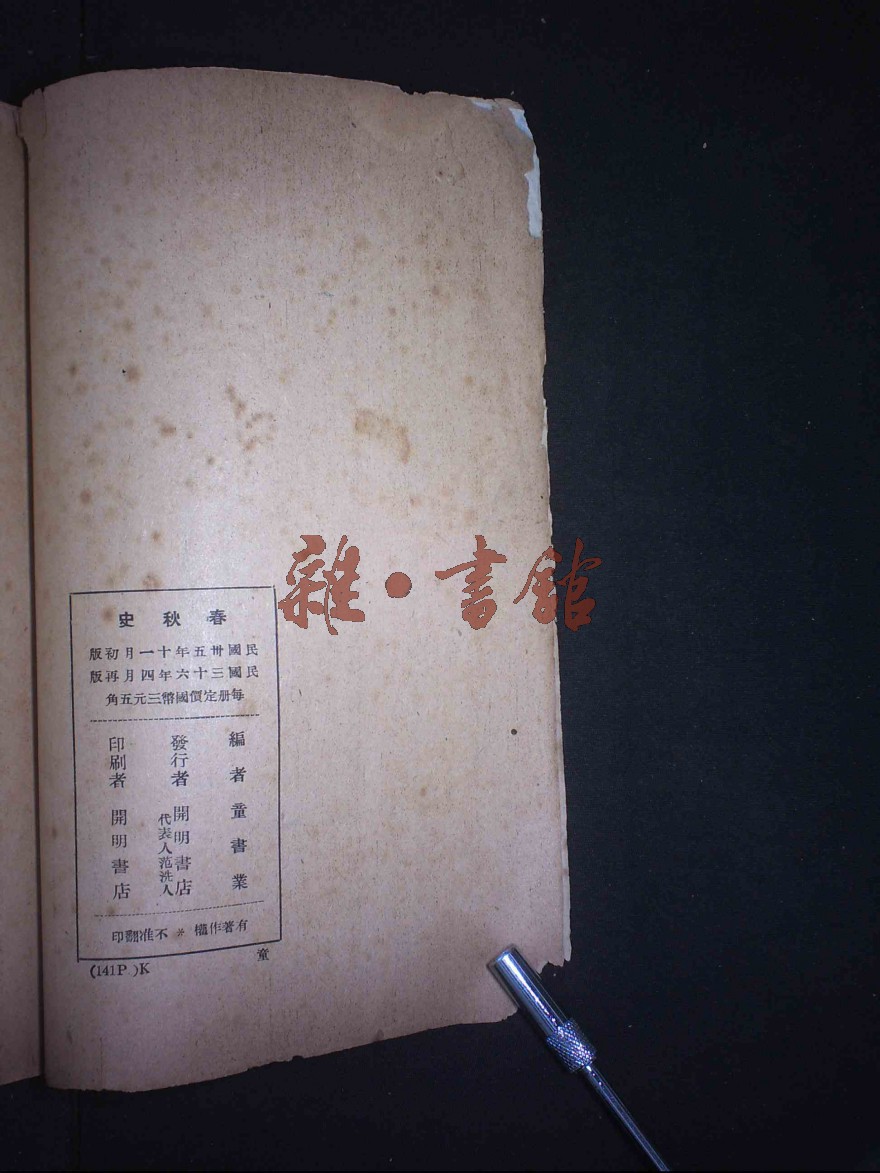 春秋史
民國卅五年十一月初版
民國三十六年四月再版
每册定價國幣三元五角
編者 童書業
發行者 開明書店
代表人范洗人
印刷者 開明書店
有著作權 * 不准翻印
童
(141P )K
雜·書館